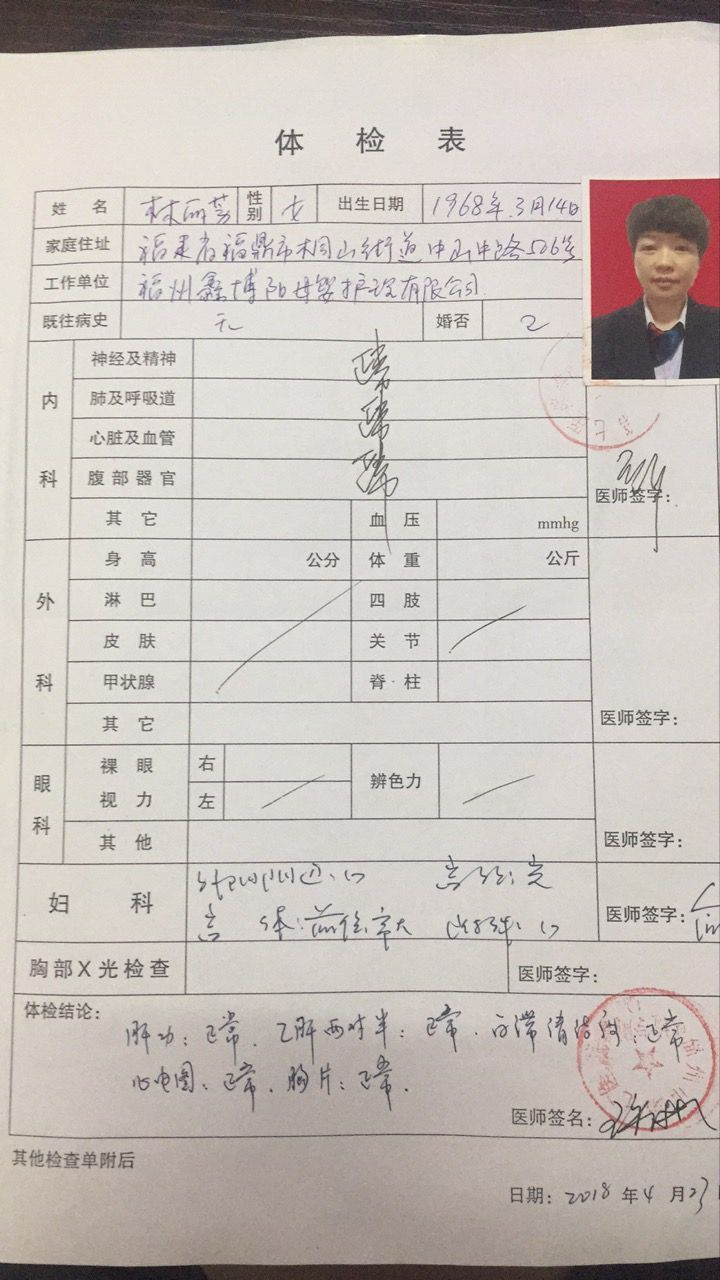 体 检 表
姓 名 林丽芳 性别 女 出生日期 1968年3月14日
家庭住址 福建省福鼎市桐山街道中山中路506号
工作单位 福州鑫博阳母婴护理有限公司
既往病史 无 婚否 已
内科
神经及精神 正常
肺及呼吸道 正常
心脏及血管 正常
腹部器官 正常
医师签字:
其 它 血 压 mmhg
外科
身 高 公分 体 重 公斤
淋 巴 四 肢
皮 肤 关 节
甲状腺 脊·柱
其 它
医师签字:
眼科
裸眼视力 右 辨色力
左
其 他
医师签字:
妇 科 宫颈:光
宫 体:前位 常大
医师签字:
胸部X光检查 医师签字:
体检结论:
肝功:正常. 乙肝两对半:正常. 白带清洁 正常
心电图:正常. 胸片:正常.
医师签名:
其他检查单附后
日期: 2018 年 4 月 23 日